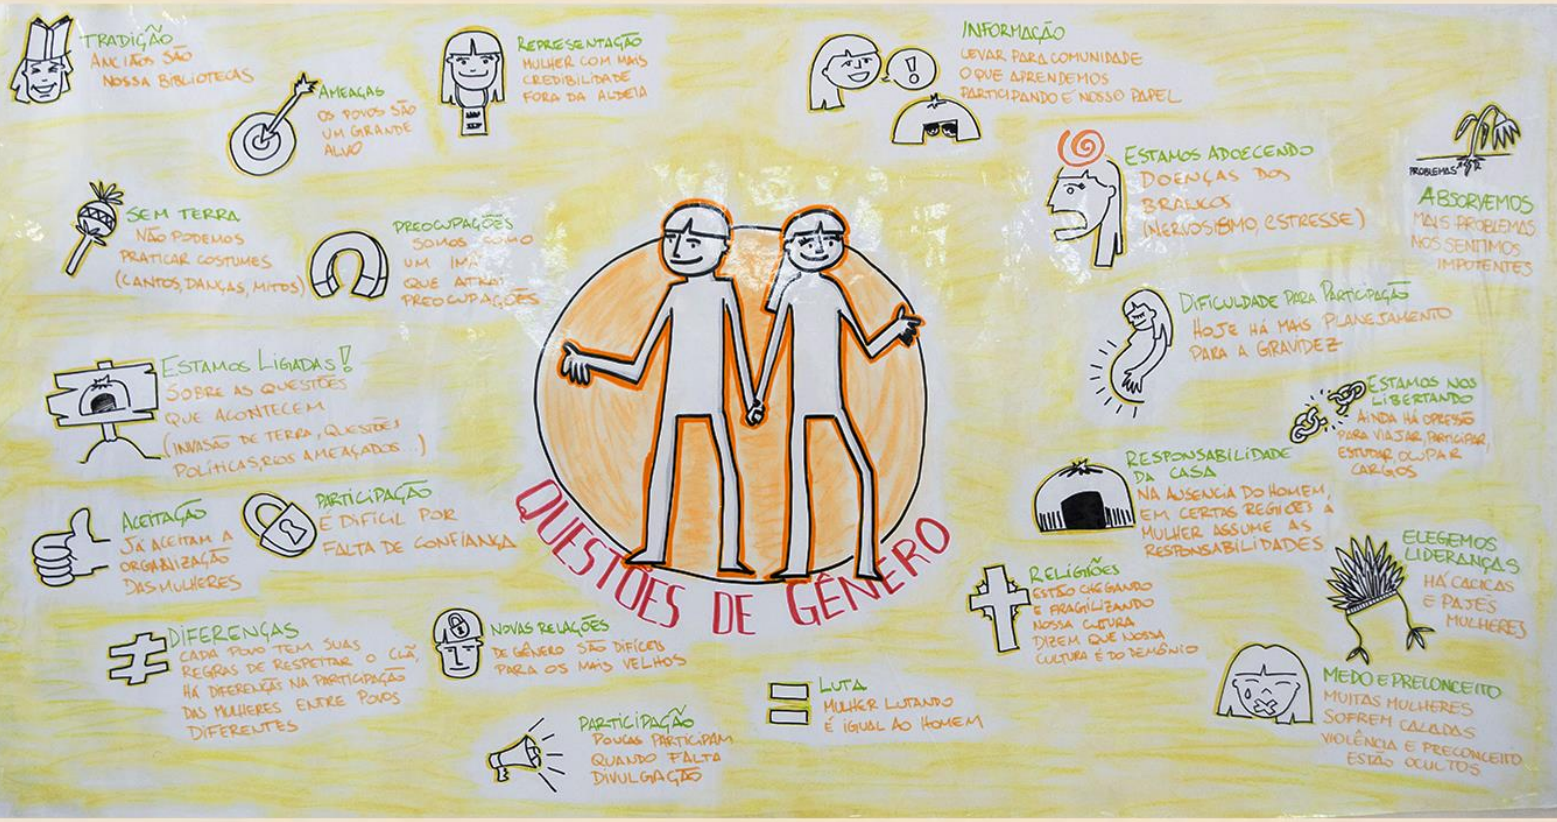 TRADIÇÃO
ANCIÃOS SÃO
NOSSA BIBLIOTECAS
AMEAÇAS
OS POVOS SÃO
UM GRANDE
ALVO
REPRESENTAÇÃO
MULHER COM MAIS
CREDIBILIDADE
FORA DA ALDEIA
INFORMAÇÃO
LEVAR PARA COMUNIDADE
O QUE APRENDEMOS
PARTICIPANDO É NOSSO PAPEL
ESTAMOS ADOECENDO
DOENÇAS DOS
BRANCOS
(NERVOSISMO, ESTRESSE)
PROBLEMAS
ABSORVEMOS
MAIS PROBLEMAS
NOS SENTIMOS
IMPOTENTES
SEM TERRA
NÃO PODEMOS
PRATICAR COSTUMES
(CANTOS, DANÇAS, MITOS)
PREOCUPAÇÕES
SOMOS COMO
UM IMÃ
QUE ATRAI
PREOCUPAÇÕES
DIFICULDADE PARA PARTICIPAÇÃO
HOJE HÁ MAIS PLANEJAMENTO
PARA A GRAVIDEZ
ESTAMOS LIGADAS!
SOBRE AS QUESTÕES
QUE ACONTECEM
(INVASÃO DE TERRA, QUESTÕES
POLÍTICAS, RIOS AMEAÇADOS...)
ESTAMOS NOS
LIBERTANDO
AINDA HÁ OPRESSÃO
PARA VIAJAR, PARTICIPAR,
ESTUDAR, OCUPAR
CARGOS
RESPONSABILIDADE
DA CASA
NA AUSENCIA DO HOMEM,
EM CERTAS REGIÕES A
MULHER ASSUME AS
RESPONSABILIDADES
ACEITAÇÃO
JÁ ACEITAM A
ORGANIZAÇÃO
DAS MULHERES
PARTICIPAÇÃO
É DIFICIL POR
FALTA DE CONFIANÇA
QUESTÕES DE GÊNERO
ELEGEMOS
LIDERANÇAS
HÁ CACICAS
E PAJÉS
MULHERES
RELIGIÕES
ESTÃO CHEGANDO
E FRAGILIZANDO
NOSSA CULTURA
DIZEM QUE NOSSA
CULTURA É DO DEMÔNIO
DIFERENÇAS
CADA POVO TEM SUAS
REGRAS DE RESPEITAR O CLÃ,
HÁ DIFERENÇAS NA PARTICIPAÇÃO
DAS MULHERES ENTRE POVOS
DIFERENTES
NOVAS RELAÇÕES
DE GÊNERO SÃO DIFÍCEIS
PARA OS MAIS VELHOS
LUTA
MULHER LUTANDO
É IGUAL AO HOMEM
MEDO E PRECONCEITO
MUITAS MULHERES
SOFREM CALADAS
VIOLÊNCIA E PRECONCEITO
ESTÃO OCULTOS
PARTICIPAÇÃO
POUCAS PARTICIPAM
QUANDO FALTA
DIVULGAÇÃO